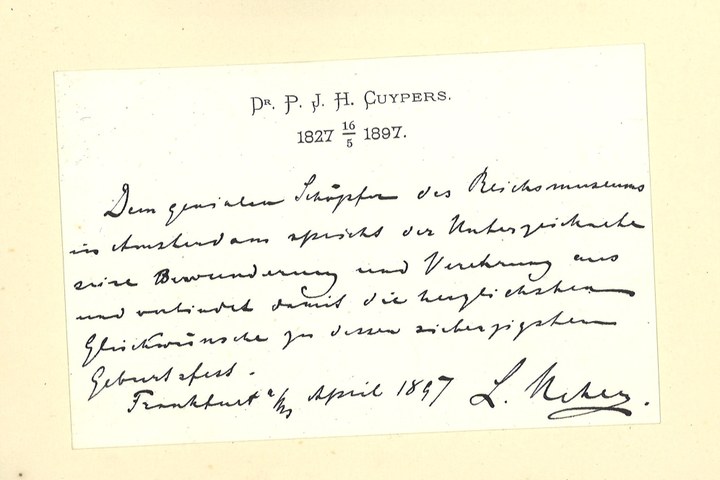 Dr. P. J. H. Cuypers.
1827 16/5 1897.
Dem genialen Schöpfer des Reichsmuseums
in Amsterdam spricht der Unterzeichnete
seine Bewunderung und Verehrung aus
und verbindet damit die herzlichsten
Glückwünsche zu dessen siebenzigstem
Geburtsfest.
Frankfurt a/M April 1897 L.